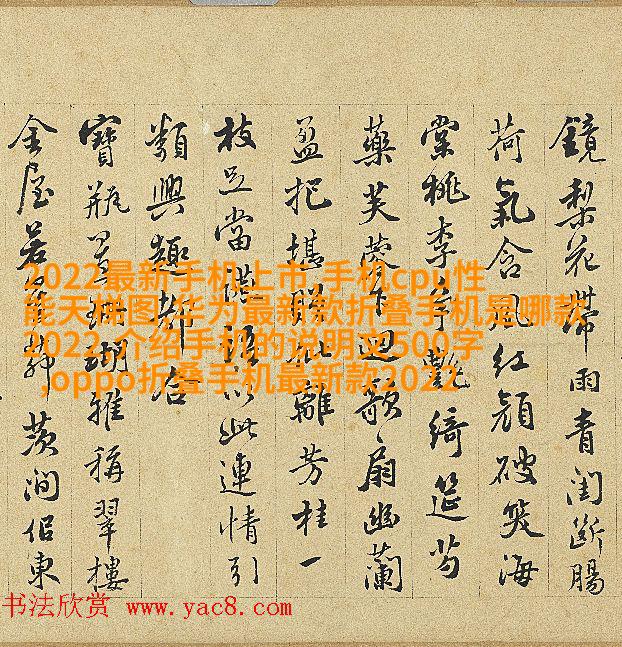 鏡梨花帶雨青閨斷腸
荷氣含風紅顏破笑海
棠桃李爭艷綺筵芍
藥芙蓉下迴歌扇幽蘭
盈把堪聯離芳桂一
枝足當以此連情引
類興趣都合
寶瓶置珊瑚雅稱翠樓
金屋若茨澗佀東
2022最新手机上市,手机cpu性
能天梯图,华为最新款折叠手机是哪款
2022,介绍手机的说明文500字
,oppo折叠手机最新款2022
书法欣赏 www.yac8.com